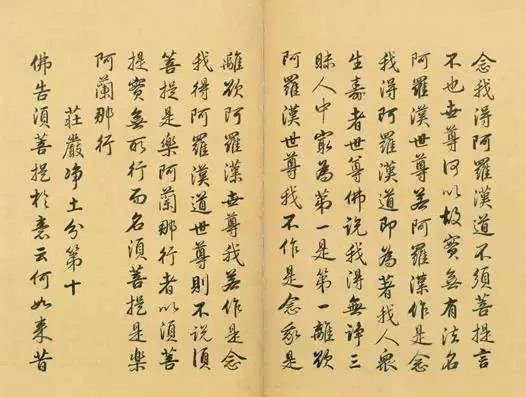 念我得阿羅漢道不須菩提言
不也世尊何以故實無有法名
阿羅漢世尊若阿羅漢作是念
我得阿羅漢道即為著我人衆
生壽者世尊佛說我得無諍三
昧人中最為第一是第一離欲
阿羅漢世尊我不作是念我是
離欲阿羅漢世尊我若作是念
我得阿羅漢道世尊則不說須
菩提是樂阿蘭那行者以須菩
提實無所行而名須菩提是樂
阿蘭那行
莊嚴净土分第十
佛告須菩提於意云何如來昔